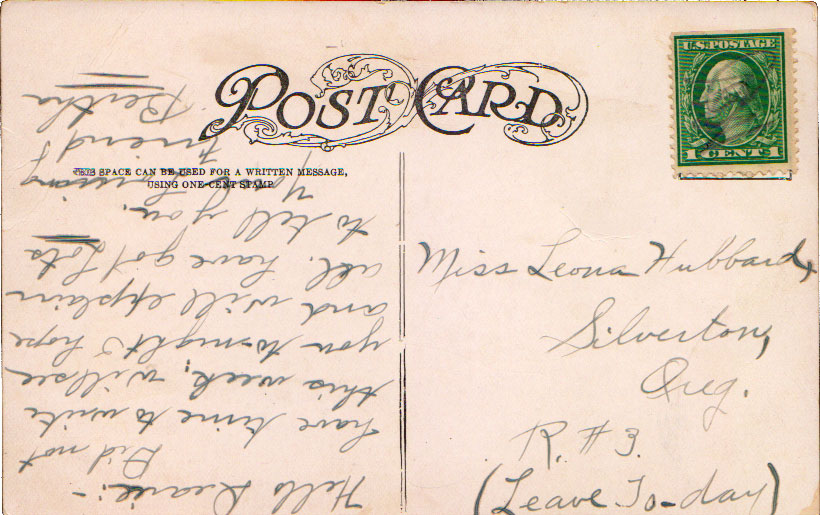 POST CARD
THIS SPACE CAN BE USED FOR A WRITTEN MESSAGE,
USING ONE-CENT STAMP
U.S. POSTAGE
1 CENT 1
Hello Dearie:-
Did not
have time to write
this week, will see
you to-night I hope
and will explain
all. have got Lots
to tell you.
Your Loving
friend
Bertha
Miss Leona Hubbard,
Silverton,
Oreg.
R. #3.
(Leave To-day)